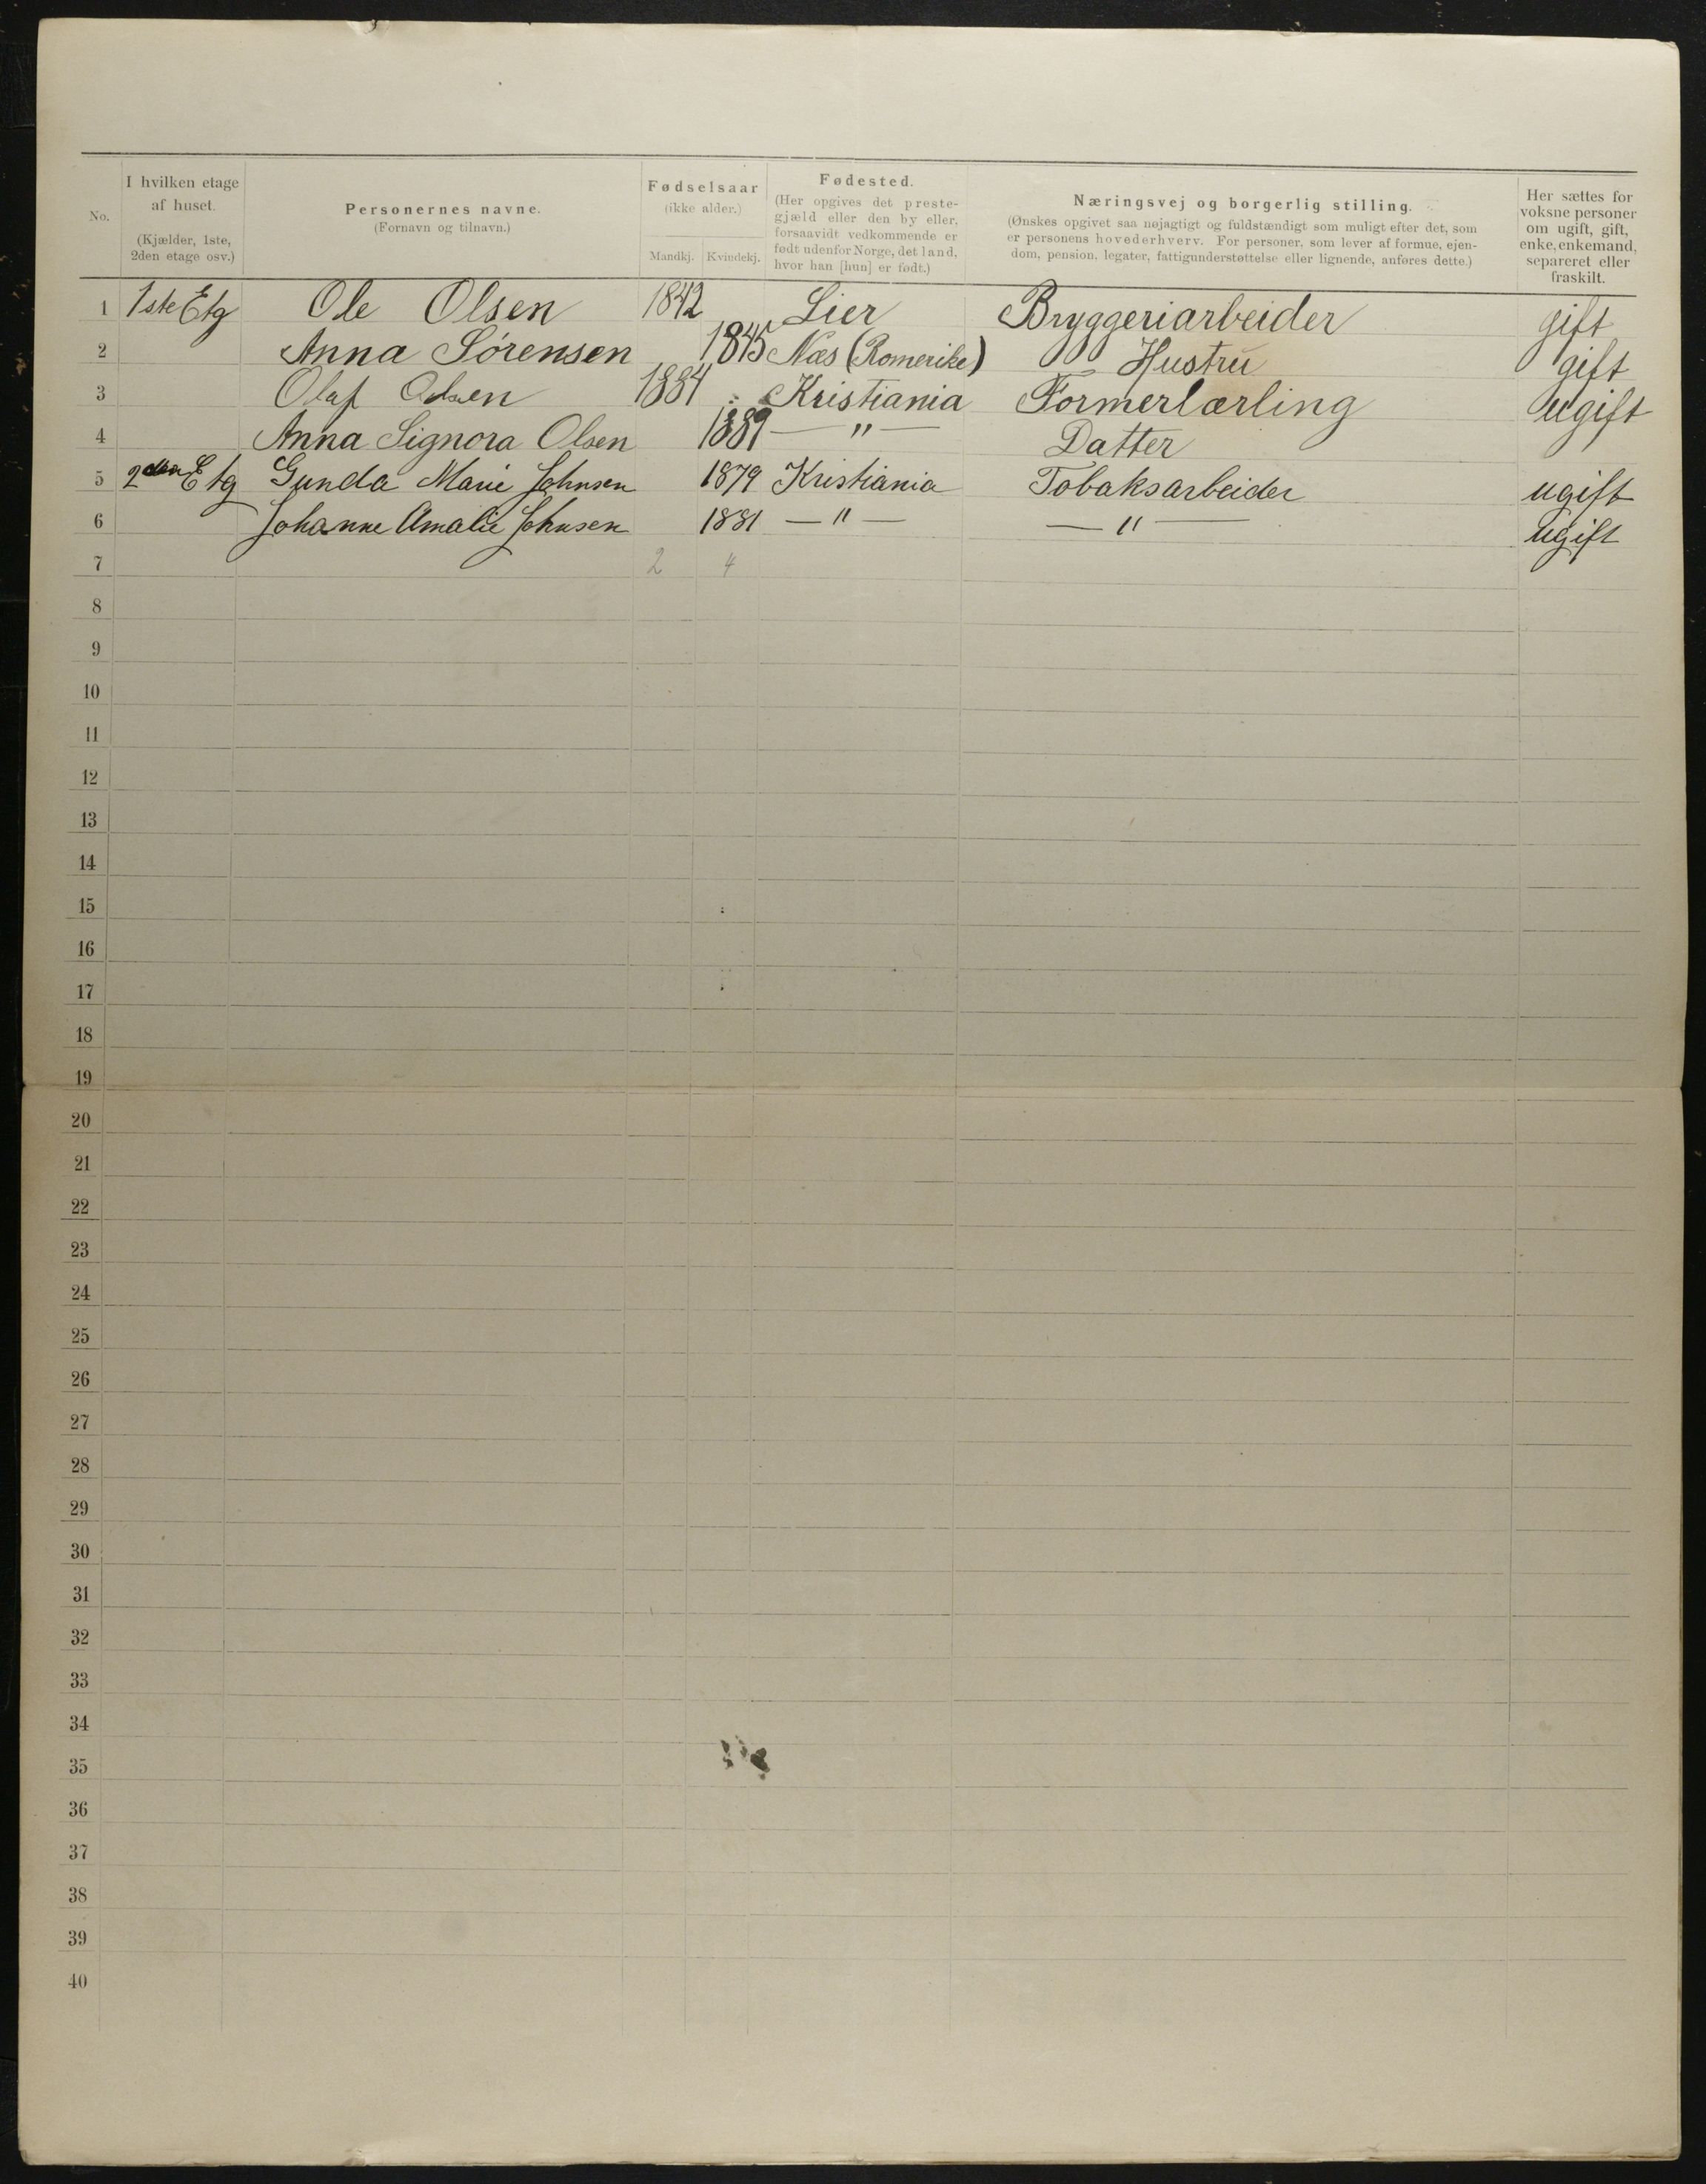 No.
I hvilken etage af huset. (Kjælder, 1ste, 2den etage osv.)
Personernes navne. (Fornavn og tilnavn.)
Fødselsaar (ikke alder.)
Mandkj. Kvindekj.
Fødested. (Her opgives det prestegjæld eller den by eller, forsaavidt vedkommende er født udenfor Norge, det land, hvor han [hun] er født.)
Næringsvej og borgerlig stilling. (Ønskes opgivet saa nøjagtigt og fuldstændigt som muligt efter det, som er personens hovederhverv. For personer, som lever af formue, ejendom, pension, legater, fattigunderstøttelse eller lignende, anføres dette.)
Her sættes for voksne personer om ugift, gift, enke, enkemand, separeret eller fraskilt.
1 1ste Etg Ole Olsen 1842 Lier Bryggeriarbeider gift
2 Anna Sørensen 1845 Næs (Romerike) Hustru gift
3 Olaf Olsen 1884 Kristiania Formerlærling ugift
4 Anna Signora Olsen 1889 — " — Datter
5 2den Etg Gunda Marie Johnsen 1879 Kristiania Tobaksarbeider ugift
6 Johanne Amalie Johnsen 1881 — " — — " — ugift
7 2 4
8
9
10
11
12
13
14
15
16
17
18
19
20
21
22
23
24
25
26
27
28
29
30
31
32
33
34
35
36
37
38
39
40